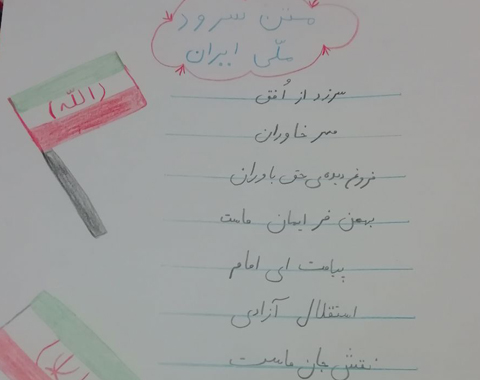 متن سرود
ملّی ایران
(الله)
سرزد از اُفق
مهر خاوران
فروغ دیده‌ی حق باوران
بهمن فر ایمان ماست
پیامت ای امام
استقلال آزادی
نقش جان ماست